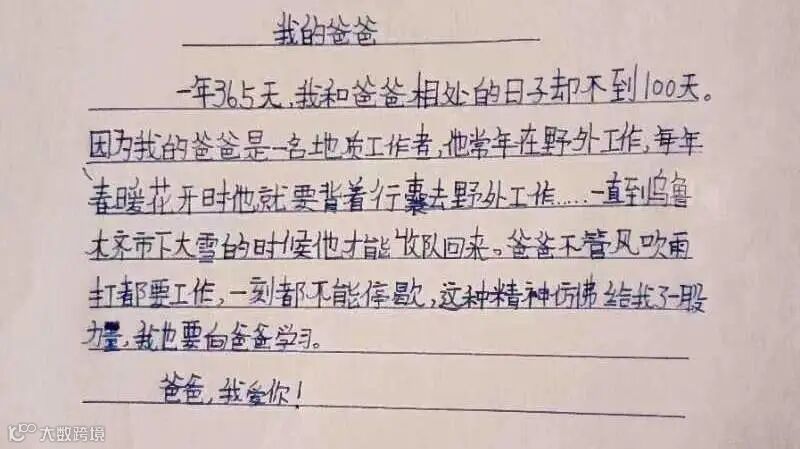 我的爸爸
一年365天,我和爸爸相处的日子却不到100天。
因为我的爸爸是一名地质工作者,他常年在野外工作,每年
春暖花开时他就要背着行囊去野外工作……一直到乌鲁
木齐市下大雪的时候他才能收队回来。爸爸不管风吹雨
打都要工作,一刻都不能停歇,这种精神仿佛给我了一股
力量,我也要向爸爸学习。
爸爸,我爱你!
大数跨境